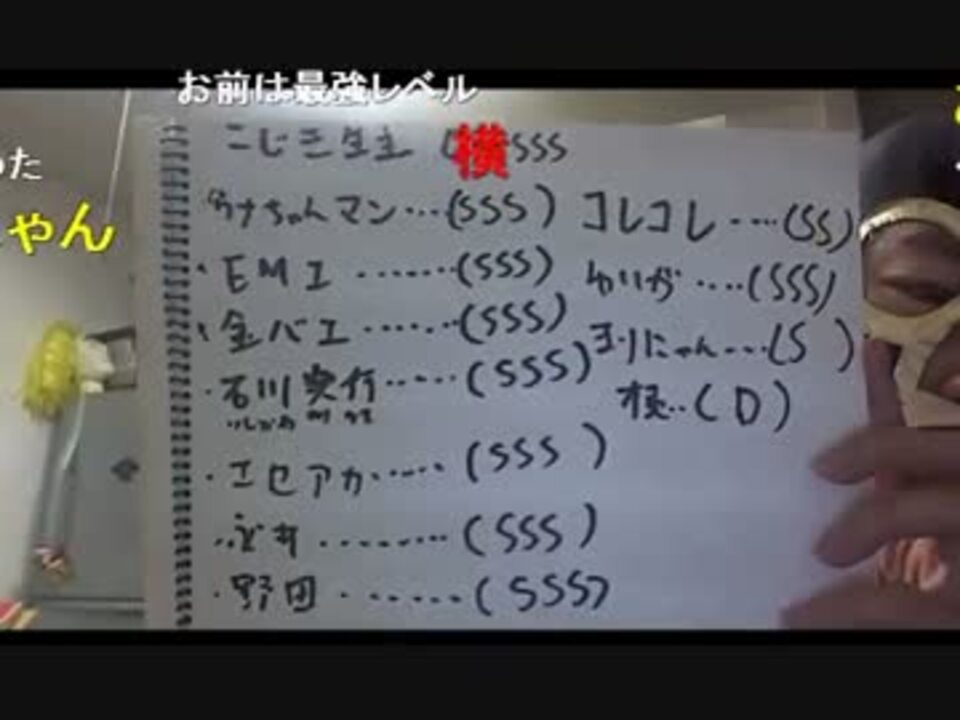 お前は最強レベル
った
ゃん
こじき生主 ( 横 SSS
ウナちゃんマン…(SSS)
・EMI ……(SSS)
・金バエ ……(SSS)
・石川実行……(SSS)
・エセアカ……(SSS)
………(SSS)
・野田 ・……(SSS)
コレコレ……(SS)
ゆいが……(SSS)
ヨリにゃん…(S)
極‥(D)